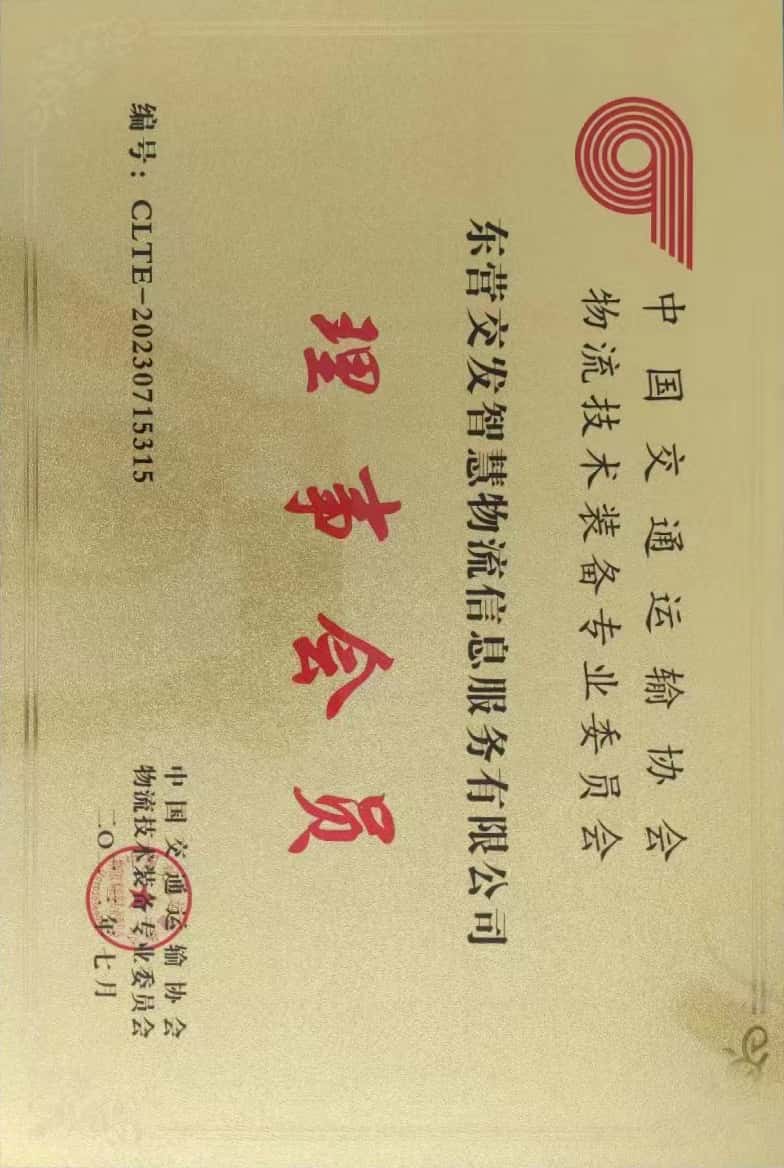 中国交通运输协会
物流技术装备专业委员会
东营交发智慧物流信息服务有限公司
理事会员
编号：CLTE-20230715315
中国交通运输协会
物流技术装备专业委员会
二〇二三年七月